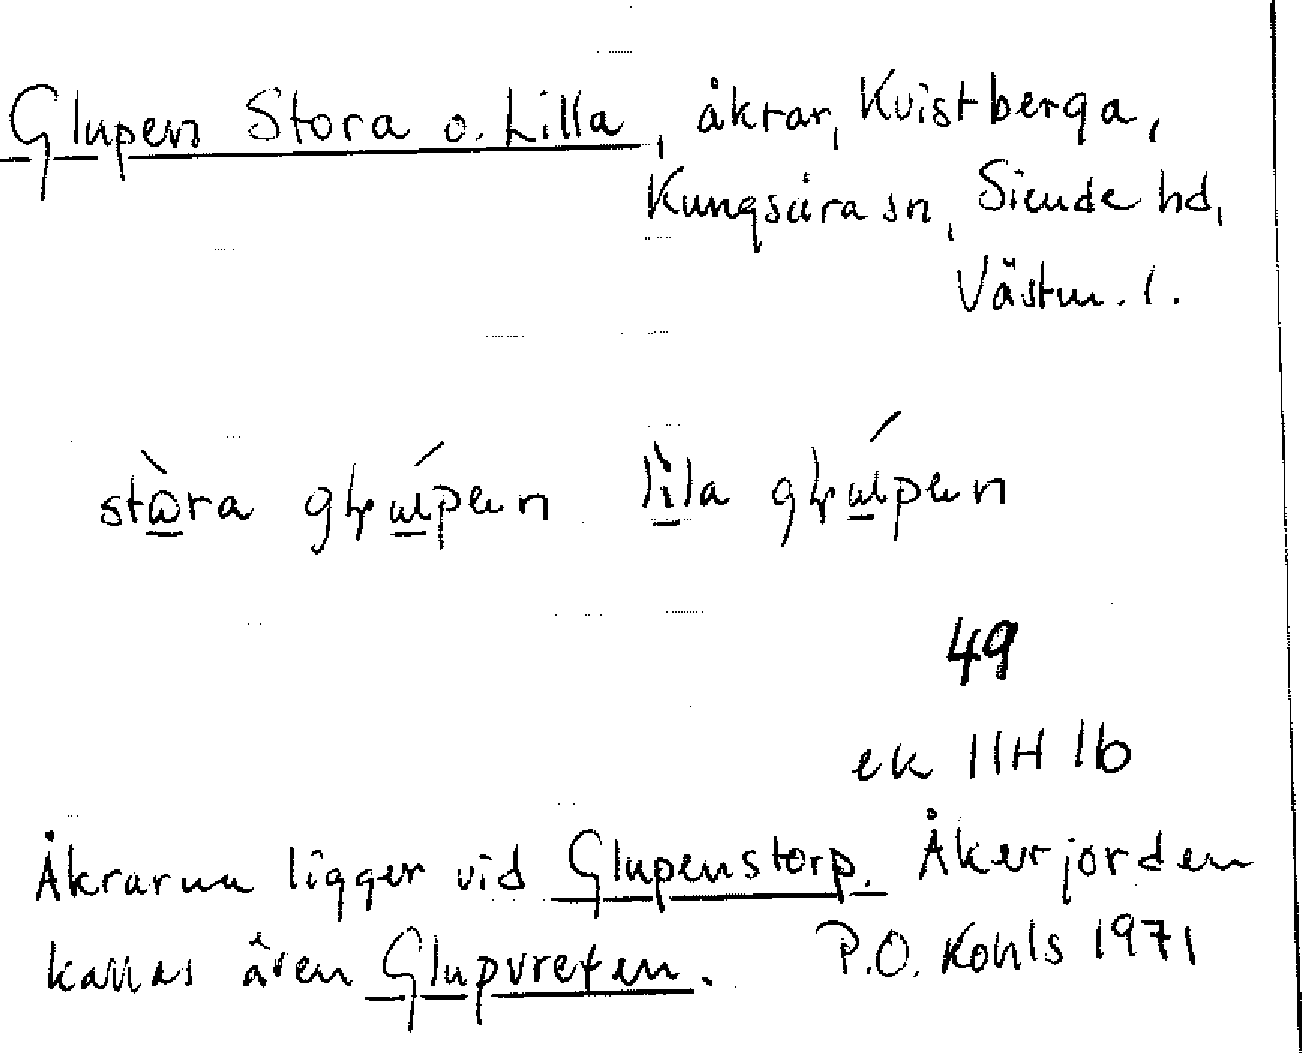 Glupen Stora o. Lilla, åkrar, Kvistberga,
Kungsåra sn, Siende hd,
Västm. l.
stɷ̀ra
lìla
49
ek 11H 1b
Åkrarna ligger vid Glupenstorp. Åkerjorden
kallas även Glupvreten. P.O. Kohls 1971